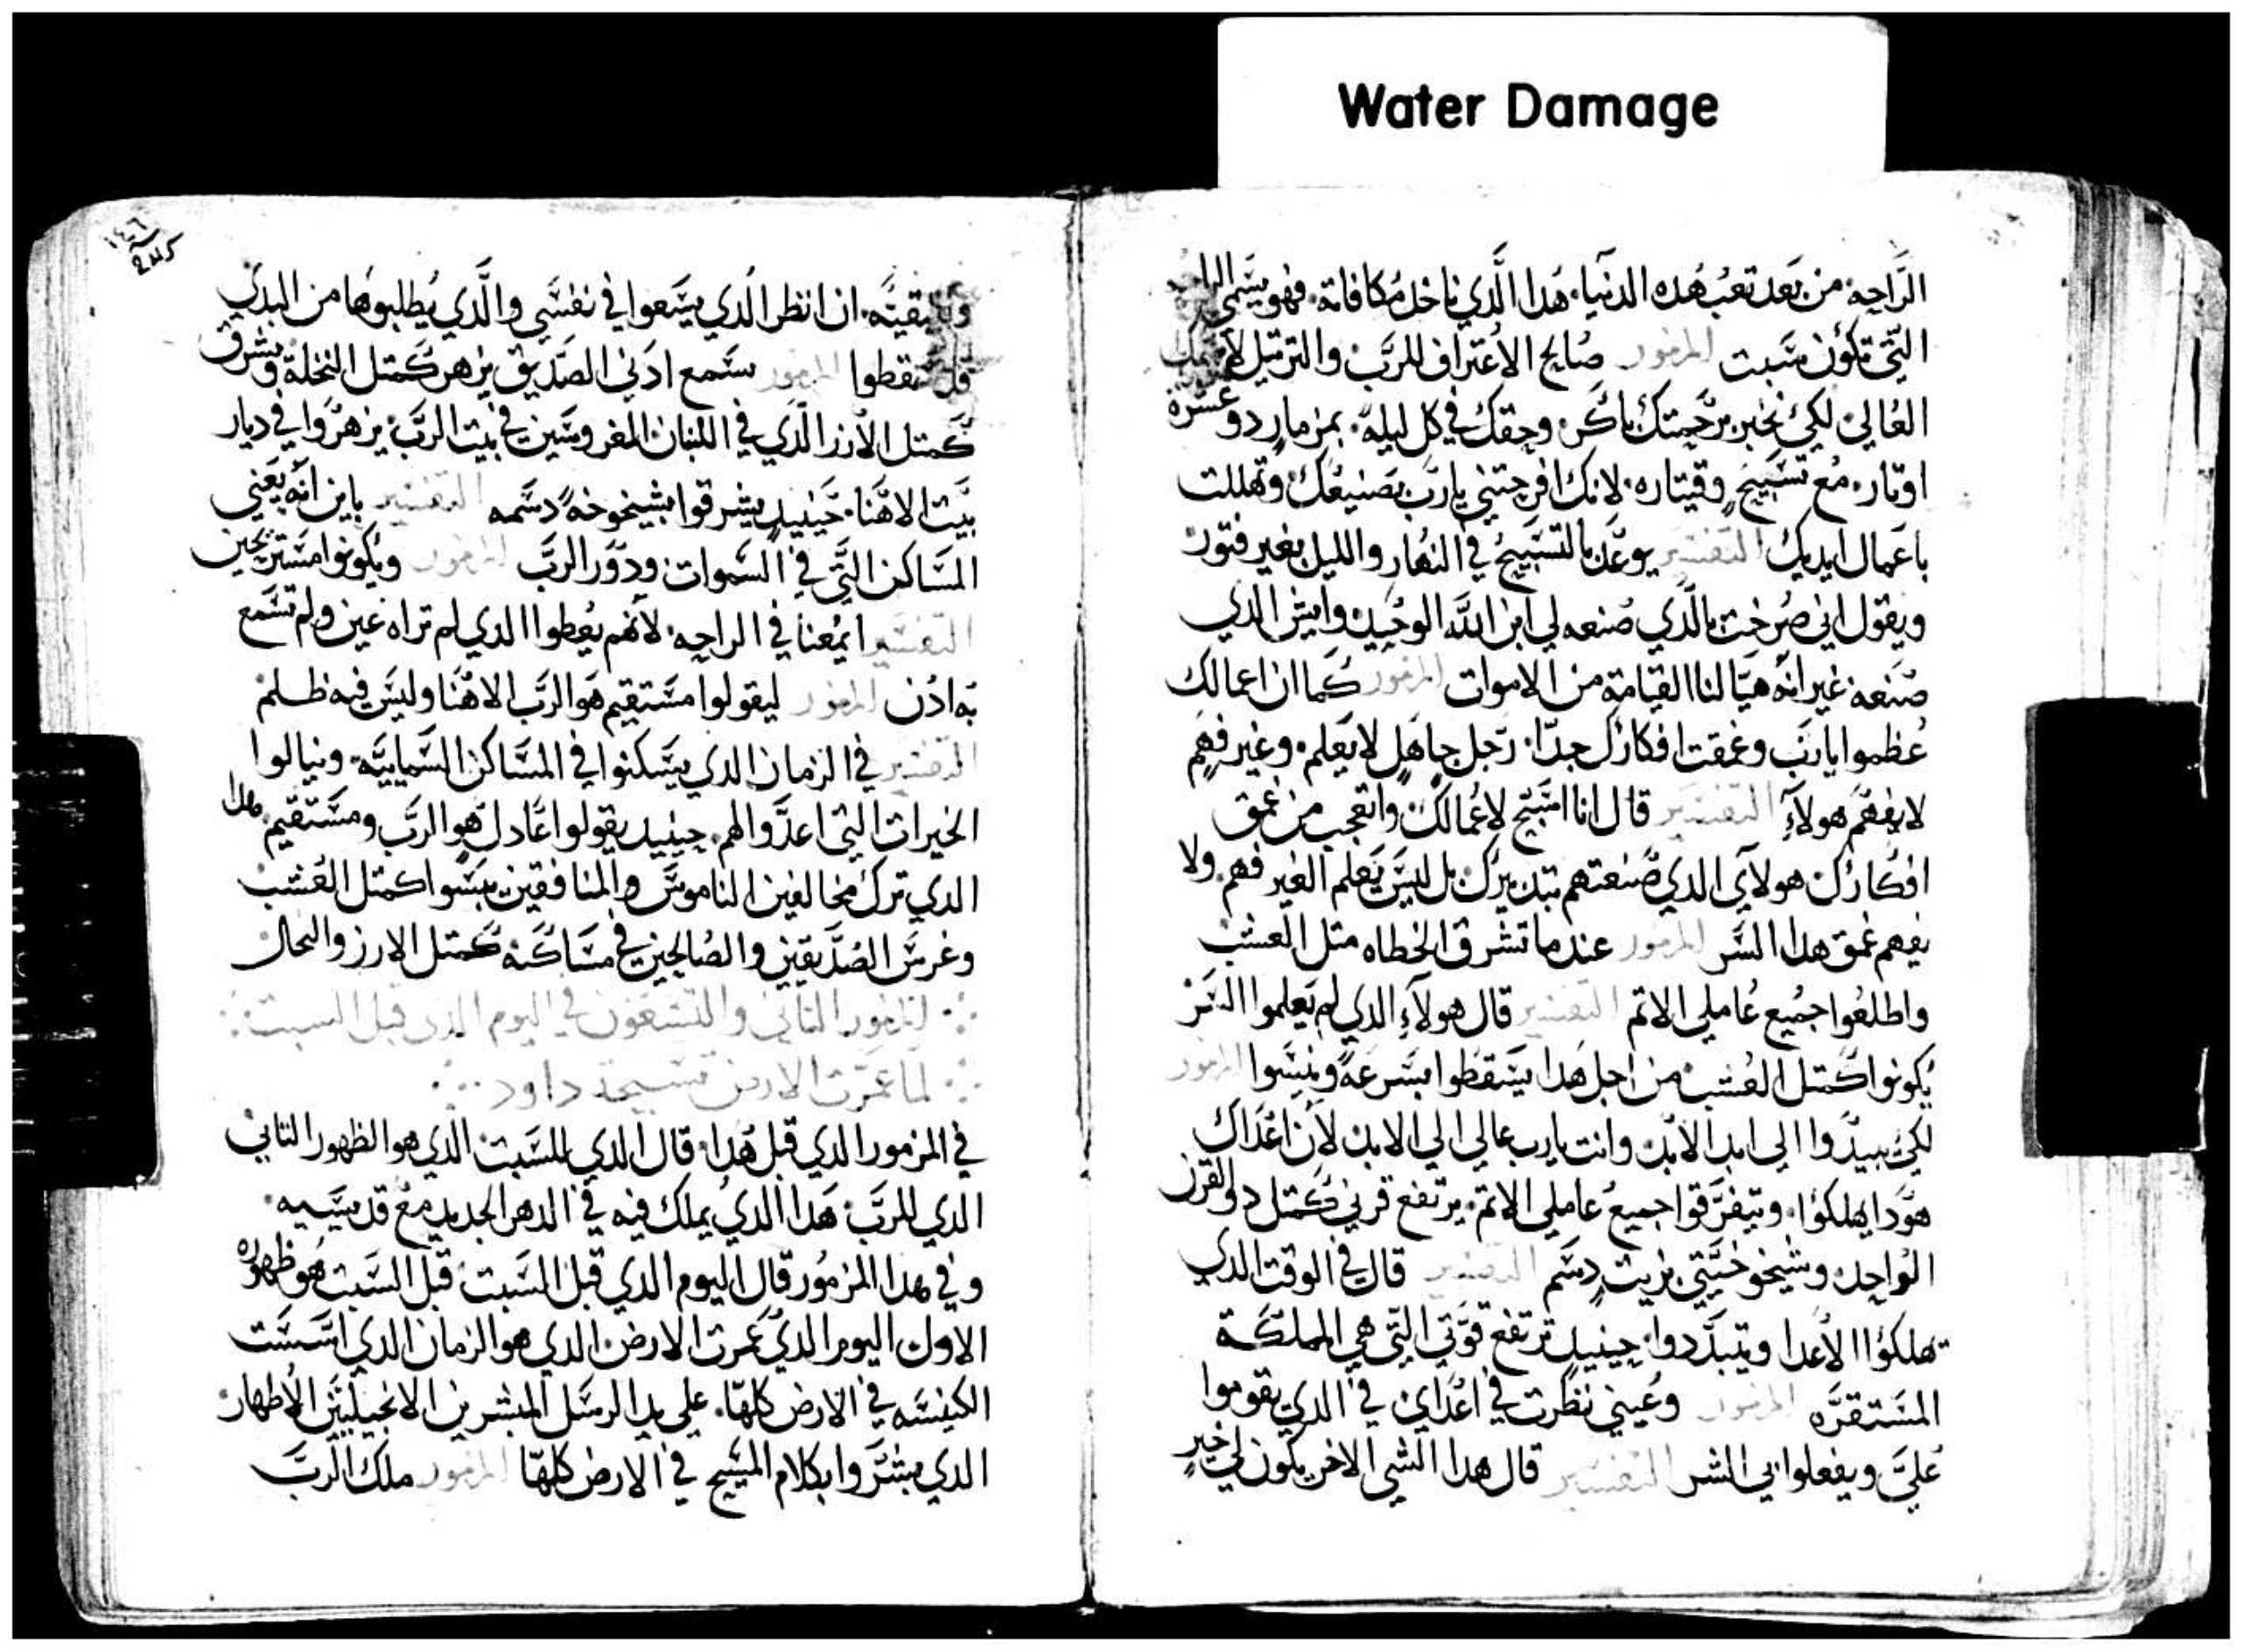 Water Damage
الرَّاحه من بَعد تعَب هَده الدنيا. هَدا الَّدي ناخد مُكافاته. فهو يسَّمى الراحه
التي تكَون سَبت المزمور صَالح الاعتراف للرَّب والترتيل لاسمك
العَالي لكي نخبر برحمتك باكر. وحقك في كل ليله. بمزمار دو عشرة
اوتار. مع تسَبيح وقيتاره. لانك افرحتني يارب بصَنيعَك. وتهللت
باعَمال ايديك التفسير يوعَد بالتسَبيح في النهَار والليل بغير فتور
ويقول اني صَرخت بالَّدي صَنعه لي ابن اللَّه الوحيد وايش الدي
صَنعه غير انه هيا لنا القيامة من الاموات المزمور كما ان اعمالك
عَظموا يارب وعَمقت افكارك جدا. رَجل جاهل لايَعلم. وغير فهم
لايفهم هولاء التفسير قال انا اسَبح لاعَمالك واتعجب من عمق
افكارك هولاي الدي صَنعتهم بتدبيرك بل ليسَ يَعلم الغير فهم. ولا
يفهم عَمق هدا السَر المزمور عندما تشرق الخطاه متل العشب
واطلعَوا جميع عَاملي الاتم التفسير قال هولاء الدي لم يَعلموا السَر
يكونوا كمتل العَشب من اجل هَدا يسَقطوا بسَرعَة ويبسَوا المزمور
لكي يبيدَوا الى ابد الابد وانت يارب عالي الى الابد لان اعَداك
هَودا يهلكوا. ويتفرقوا جميع عَاملي الاتم. يرتفع قرني كمتل دو القرن
الواحد. وشيخوخيَّتي بزيت دسَم التفسير قال في الوقت الدي
تهلكوا الاعدا ويتبدَّدوا. حينيد ترتفع قوَتي التي هي المملكة
المسَتقرَه المزمور وعَيني نظرت في اعَداي في الدي يقوموا
عَليَّ ويفعلوا بي الشر التفسير قال هدا الشي الاخر يكون لي خير
١٤٦
ان انظر الَدي يسَعوا في نفسَي والَّدي يُطلبوها من البدي
قد سَقطوا المزمور ستَمع ادَني الصَديق يزهر كمتل النخلة ويشرق
كَمتل الارز الَّدي في اللبنان. المغروسَين في بيت الرَّب. يزهرَوا في ديار
بيَت الاهَنا. حَينيد يشرقوا بشيخوخة دسَمه التفسير باين انه يعَني
المسَاكن التَّي في السَموات ودوَر الرَبَّ المزمور ويكونوا مسَتريحين
التفسير ايَمعنا في الراحه. لانهم يعَطوا الدي لم تراه عَين ولم تسَمع
به ادَن المزمور ليقولوا مسَتقيم هَو الرَب الاهَنا وليسَ فيه ظلم
التفسير في الزمان الدي يسَكنوا في المسَاكن السَماييَه. وينالوا
الخيرات التي اعدَّوا لهم. حينيد يقولوا عَادل هو الرَب ومسَتقيم. هدا
الدي ترك مخالفين الناموسَ والمنافقين يبسَوا كمتل العَشب
وغرسَ الصَدَيقين والصَالحين في مسَاكنه كمتل الارز والنخل
المزمور التاني والتسَعَون في اليوم الدي قبل السبت
لما عمَرت الارض تسَبحة داود
في المزمور الدي قبل هَدا. قال الدي للسَبت الدي هو الظهور التاني
الدي للرَبَّ هَدا الدي يملك فيه في الدهر الجديد مع قديسَيه.
وفي هدا المزمَور قال اليوم الدي قبل السَبت. قبل السَبت هَو ظهوره
الاول اليوم الدي عَمرت الارض الدي هو الزمان الدي اسَسَت
الكنيسَه في الارض كلها. على يد الرسَل المبشرين الانجيليين الاطهار
الدي بشرَوا بكلام المسَيح في الارض كلها المزمور ملك الرَبَّ